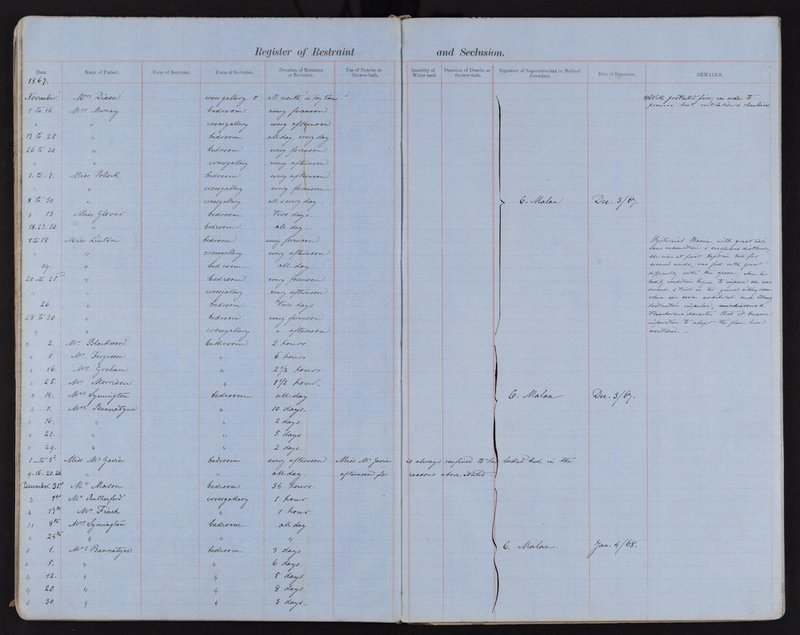 Register of Restraint and Seclusion.
Date. Names of Patient. Form of Restraint. Form of Seclusion. Duration of Restraint or Seclusion. Use of Douche or Shower-bath. Quantity of Water used. Duration of Douche or Shower-bath. Signature of Superintendent or Medical Attendant. Date of Signature. REMARKS.
1867.
November Mrs Dixon cross gallery all month, in day time
1 to 16 Mrs Murray bedroom every forenoon
" " crossgallery every afternoon
17 to 25 " bedroom all day every day
26 to 30 " bedroom every forenoon
" " crossgallery every afternoon
1. to 7. Miss Pollock bedroom every afternoon
" " crossgallery every forenoon
8 to 30 " crossgallery all & every day. C. Malan Dec. 3/67.
" 13. Miss Glover bedroom Two days.
18. 27. 30 " bedroom all day.
1 to 18 Miss Linton bedroom every forenoon
" " crossgallery every afternoon
19 " bed room all day
20 to 25 " bedroom every forenoon
" " crossgallery every afternoon
26 " bedroom Two days
28 to 30 " bedroom every forenoon
" " crossgallery " afternoon
" 2. Mr Blackwood bedroom 2 hours
" 5. Mr Ferguson " 6 hours
" 16. Mr Graham " 2½ hours
" 25. Mr Morrison " 1½ hour.
" 14. Mrs Symington bedroom all day C. Malan Dec. 3/67.
" 1. Mrs Bannatyne " 10 days.
" 16. " " 2 days
" 21. " " 5 days
" 29. " " 2 days.
Miss McGavin bedroom every afternoon Miss McGavin is always confined to the locked bed in the
9. 16. 20. 26 all day. afternoon for reasons above stated.
December. 31st Mr Mason bedroom 3½ hours.
" 1st Mr Rutherford crossgallery 1 hour
" 17th Mr Finch " 1 hour
" 8th Mrs Symington bedroom all day
" 24th " " "
" 1. Mrs Bannatyne bedroom 3 days C. Malan Jan. 4/68.
" 5. " " 6 days
" 12. " " 5 days
" 20 " " 8 days
" 30 " " 3 days.
in order to
Hysterical Mania, with great
she was at first kept in bed for
several weeks, was fed with great
difficulty with the spoon; when her
bodily condition began to improve she was
when she soon exhibited such
destructive impulses, mischievous &
character that it became
imperative to adopt the plan here
mentioned.